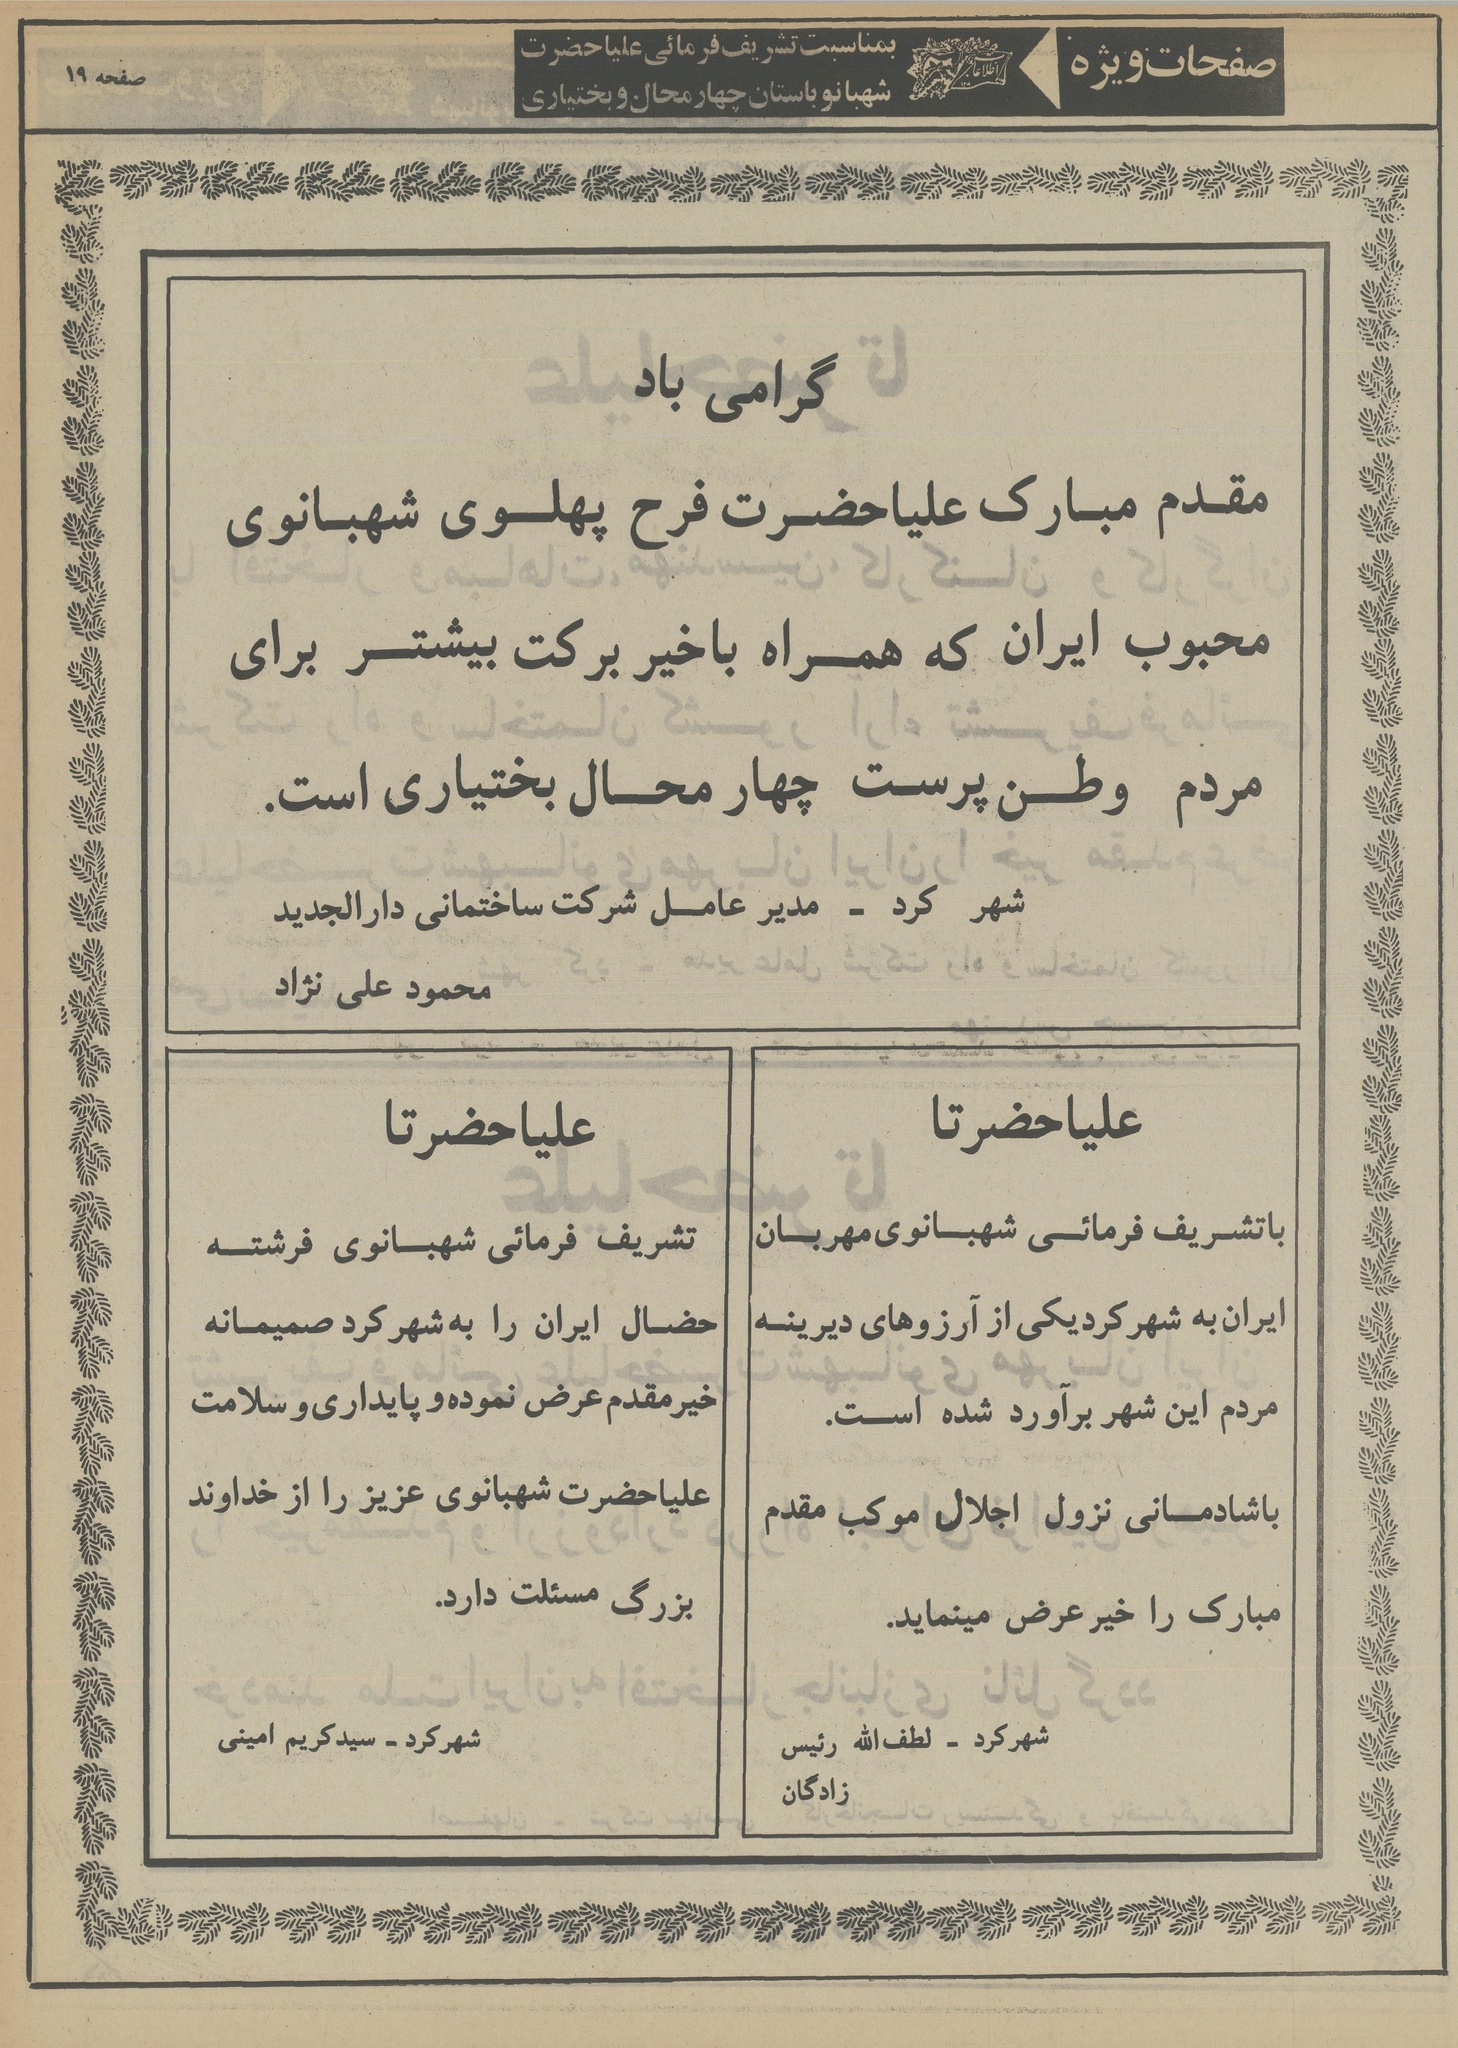 صفحات ویژه
اطلاعات
بمناسبت تشریف فرمائی علیاحضرت
شهبانو باستان چهارمحال و بختیاری
صفحه ۱۹
گرامی باد
مقدم مبارک علیاحضرت فرح پهلوی شهبانوی
محبوب ایران که همراه باخیر برکت بیشتر برای
مردم وطن پرست چهار محال بختیاری است.
شهر کرد - مدیر عامل شرکت ساختمانی دارالجدید
محمود علی نژاد
علیاحضرتا
باتشریف فرمائی شهبانوی مهربان
ایران به شهرکرد یکی از آرزوهای دیرینه
مردم این شهر برآورد شده است.
باشادمانی نزول اجلال موکب مقدم
مبارک را خیر عرض مینماید.
شهرکرد - لطف‌الله رئیس
زادگان
علیاحضرتا
تشریف فرمائی شهبانوی فرشته
حضال ایران را به شهرکرد صمیمانه
خیرمقدم عرض نموده و پایداری و سلامت
علیاحضرت شهبانوی عزیز را از خداوند
بزرگ مسئلت دارد.
شهرکرد - سیدکریم امینی